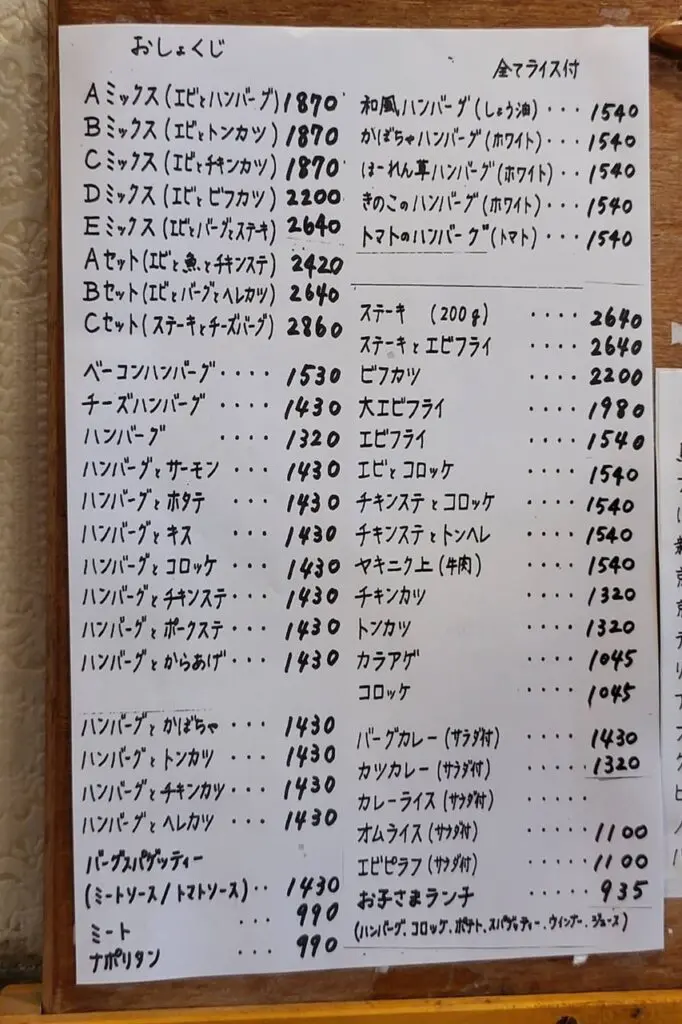 おしょくじ
全てライス付
Aミックス(エビとハンバーグ) 1870
Bミックス(エビとトンカツ) 1870
Cミックス(エビとチキンカツ) 1870
Dミックス(エビとビフカツ) 2200
Eミックス(エビとバーグとステーキ) 2640
Aセット(エビと魚とチキンステ) 2420
Bセット(エビとバーグとヘレカツ) 2640
Cセット(ステーキとチーズバーグ) 2860
ベーコンハンバーグ ···· 1530
チーズハンバーグ ···· 1430
ハンバーグ ···· 1320
ハンバーグとサーモン ··· 1430
ハンバーグとホタテ ··· 1430
ハンバーグとキス ··· 1430
ハンバーグとコロッケ ··· 1430
ハンバーグとチキンステ ··· 1430
ハンバーグとポークステ ··· 1430
ハンバーグとからあげ ··· 1430
ハンバーグとかぼちゃ ··· 1430
ハンバーグとトンカツ ··· 1430
ハンバーグとチキンカツ ··· 1430
ハンバーグとヘレカツ ··· 1430
バーグスパゲッティー
(ミートソース/トマトソース) ·· 1430
ミート ··· 990
ナポリタン ··· 990
和風ハンバーグ(しょう油) ··· 1540
かぼちゃハンバーグ(ホワイト) ·· 1540
ほーれん草ハンバーグ(ホワイト) ·· 1540
きのこのハンバーグ(ホワイト) ·· 1540
トマトのハンバーグ(トマト) ·· 1540
ステーキ (200g) ···· 2640
ステーキとエビフライ ···· 2640
ビフカツ ···· 2200
大エビフライ ···· 1980
エビフライ ···· 1540
エビとコロッケ ···· 1540
チキンステとコロッケ ···· 1540
チキンステとトンヘレ ···· 1540
ヤキニク上(牛肉) ···· 1540
チキンカツ ···· 1320
トンカツ ···· 1320
カラアゲ ···· 1045
コロッケ ···· 1045
バーグカレー(サラダ付) ····· 1430
カツカレー(サラダ付) ····· 1320
カレーライス(サラダ付) ·····
オムライス(サラダ付) ····· 1100
エビピラフ(サラダ付) ····· 1100
お子さまランチ ····· 935
(ハンバーグ、コロッケ、ポテト、スパゲッティー、ウィンナー、ジュース)